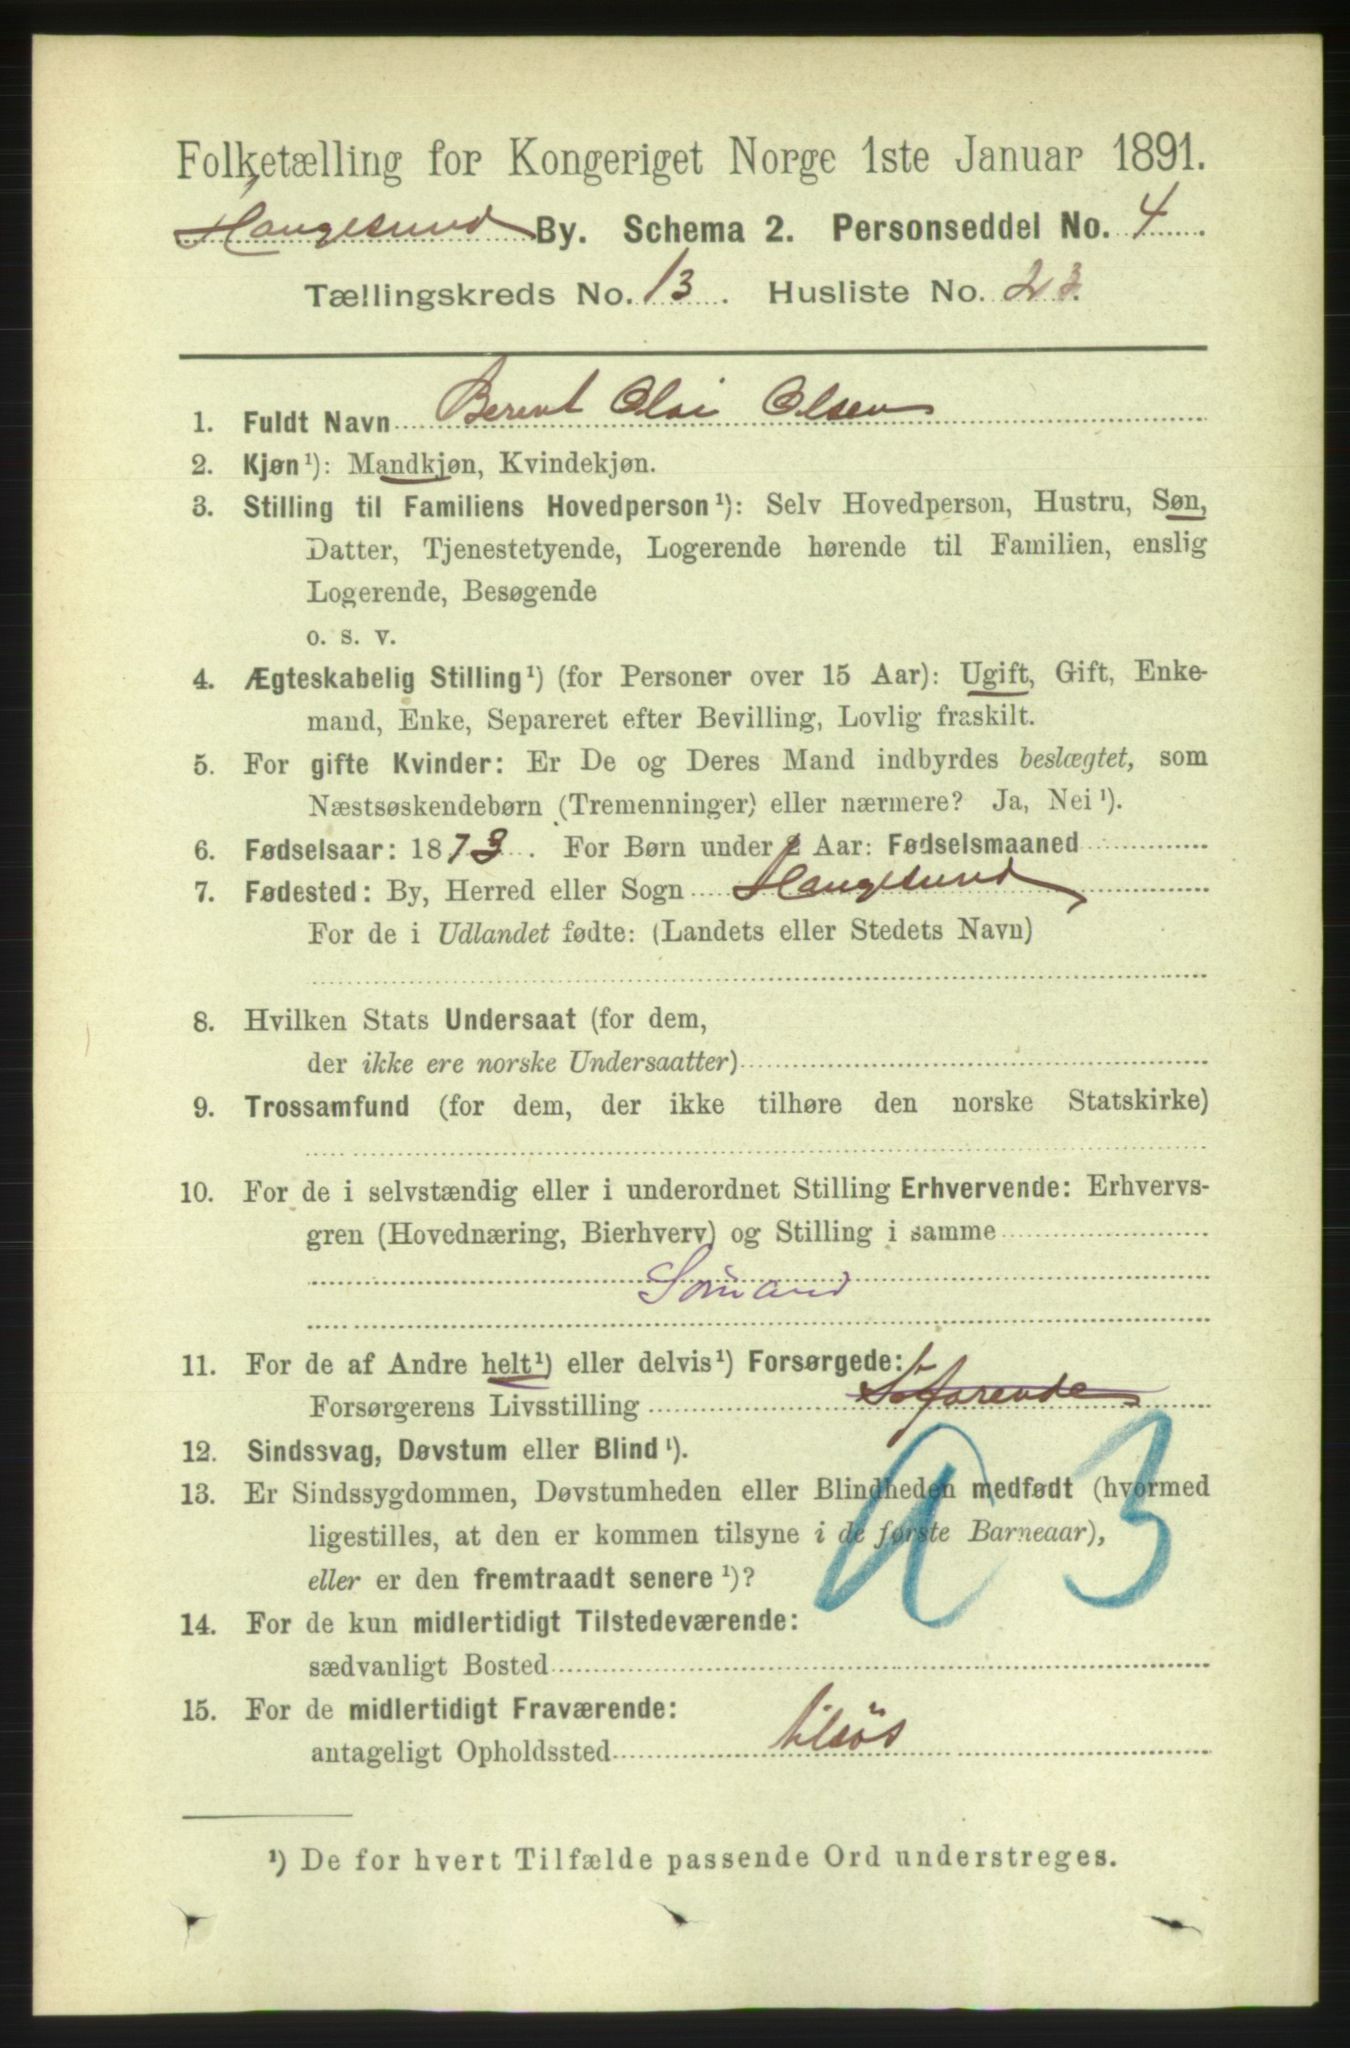 Folketælling for Kongeriget Norge 1ste Januar 1891.
Haugesund By. Schema 2. Personseddel No. 4
Tællingskreds No. 13. Husliste No. 23.
1. Fuldt Navn Berent Olai Olsen
2. Kjøn¹): Mandkjøn, Kvindekjøn.
3. Stilling til Familiens Hovedperson¹): Selv Hovedperson, Hustru, Søn,
Datter, Tjenestetyende, Logerende hørende til Familien, enslig
Logerende, Besøgende
o. s. v.
4. Ægteskabelig Stilling¹) (for Personer over 15 Aar): Ugift, Gift, Enke-
mand, Enke, Separeret efter Bevilling, Lovlig fraskilt.
5. For gifte Kvinder: Er De og Deres Mand indbyrdes beslægtet, som
Næstsøskendebørn (Tremenninger) eller nærmere? Ja, Nei¹).
6. Fødselsaar: 1873. For Børn under 2 Aar: Fødselsmaaned
7. Fødested: By, Herred eller Sogn Haugesund
For de i Udlandet fødte: (Landets eller Stedets Navn)
8. Hvilken Stats Undersaat (for dem,
der ikke ere norske Undersaatter)
9. Trossamfund (for dem, der ikke tilhøre den norske Statskirke)
10. For de i selvstændig eller i underordnet Stilling Erhvervende: Erhvervs-
gren (Hovednæring, Bierhverv) og Stilling i samme
Sømand
11. For de af Andre helt¹) eller delvis¹) Forsørgede:
Forsørgerens Livsstilling Søfarende
12. Sindssvag, Døvstum eller Blind¹).
13. Er Sindssygdommen, Døvstumheden eller Blindheden medfødt (hvormed
ligestilles, at den er kommen tilsyne i de første Barneaar),
eller er den fremtraadt senere¹)?
a 3
14. For de kun midlertidigt Tilstedeværende:
sædvanligt Bosted
15. For de midlertidigt Fraværende:
antageligt Opholdssted tilsøs
¹) De for hvert Tilfælde passende Ord understreges.